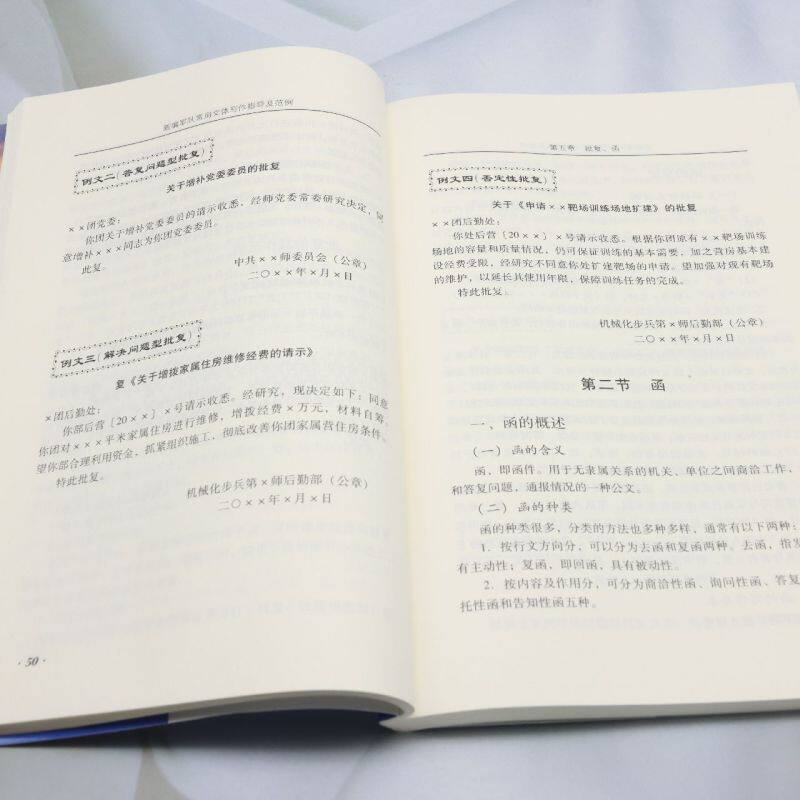 新编军队常用文体写作指导及范例
例文二(答复问题型批复)
关于增补党委委员的批复
××团党委：
你团关于增补党委委员的请示收悉，经师党委常委研究决定，同
意增补×××同志为你团党委委员。
此复。
中共××师委员会（公章）
二〇××年×月×日
例文三(解决问题型批复)
复《关于增拨家属住房维修经费的请示》
×团后勤处：
你部后营［20××］×号请示收悉。经研究，现决定如下：同意
你团对×××平米家属住房进行维修，增拨经费×万元，材料自筹。
望你部合理利用资金，抓紧组织施工，彻底改善你团家属营住房条件。
特此批复。
机械化步兵第×师后勤部（公章）
二〇××年×月×日
·50·
第五章 批复、函
例文四(否定性批复)
关于《申请××靶场训练场地扩建》的批复
××团后勤处：
你处后营［20××］×号请示收悉。根据你团原有××靶场训练
场地的容量和质量情况，仍可保证训练的基本需要，加之营房基本建
设经费受限，经研究不同意你处扩建靶场的申请。望加强对现有靶场
的维护，以延长其使用年限，保障训练任务的完成。
特此批复。
机械化步兵第×师后勤部（公章）
二〇××年×月×日
第二节 函
一、函的概述
（一）函的含义
函，即函件。用于无隶属关系的机关、单位之间商洽工作，
和答复问题，通报情况的一种公文。
（二）函的种类
函的种类很多，分类的方法也多种多样，通常有以下两种：
1．按行文方向分，可以分为去函和复函两种。去函，指发
有主动性；复函，即回函，具有被动性。
2．按内容及作用分，可分为商洽性函、询问性函、答复
托性函和告知性函五种。